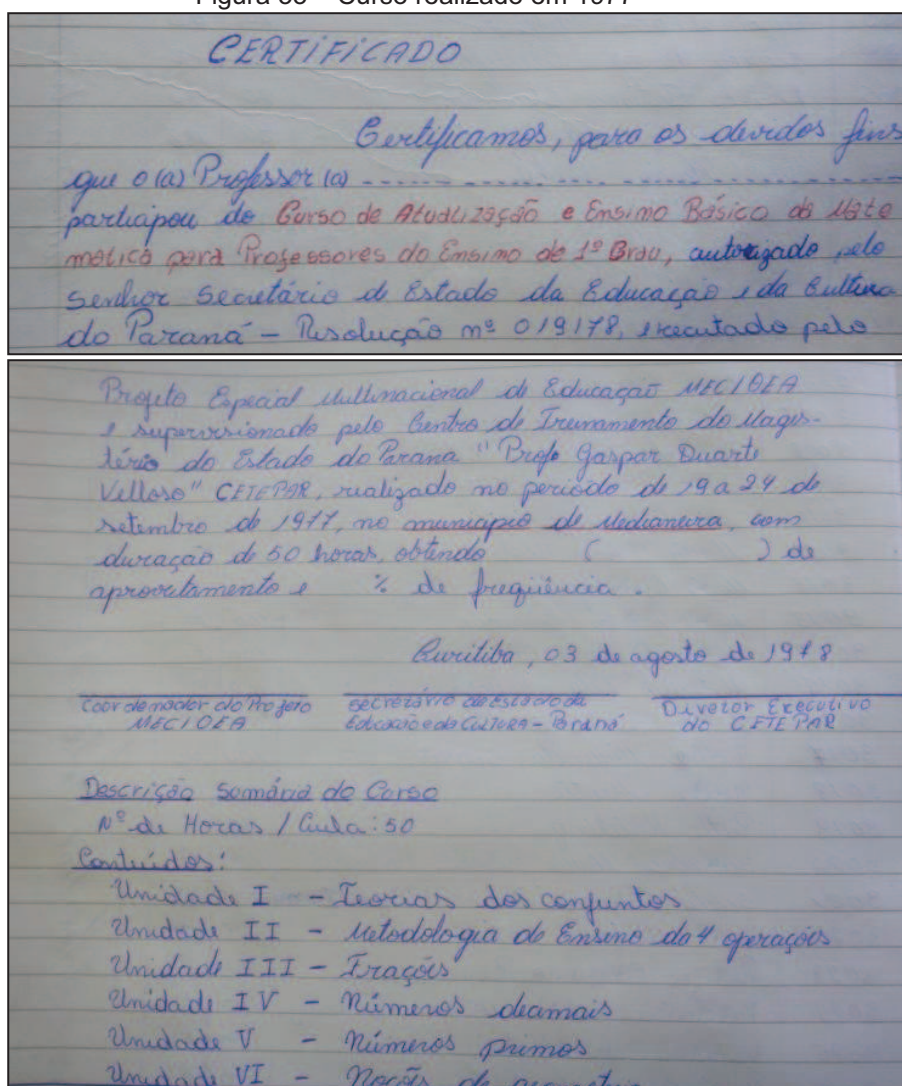 Curso realizado em 1977
CERTIFICADO
Certificamos, para os devidos fins
que o (a) Professor (a) ........................
participou do Curso de Atualização e Ensino Básico da Mate
mática para Professores do Ensino de 1º Grau, autorizado pelo
Senhor Secretário de Estado da Educação e da Cultura
do Paraná - Resolução nº 019178, executado pelo
Projeto Especial Multinacional de Educação MEC/OEA
e supervisionado pelo Centro de Treinamento do Magis-
tério do Estado do Parana "Profº Gaspar Duarte
Velloso" CETEPAR, realizado no período de 19 a 24 de
setembro de 1977, no município de Medianeira, com
duração de 50 horas, obtendo ( ) de
aproveitamento e % de freqüência.
Curitiba, 03 de agosto de 1978
Coordenador do Projeto Secretário de Estado da Diretor Executivo
MEC/OEA Educação e da Cultura - Paraná do CETEPAR
Descrição Sumária do Curso
Nº de Horas / Aula: 50
Conteúdos:
Unidade I - Teorias dos conjuntos
Unidade II - Metodologia do Ensino da 4 operações
Unidade III - Frações
Unidade IV - Números decimais
Unidade V - Números primos
Unidade VI - Noções de geometria